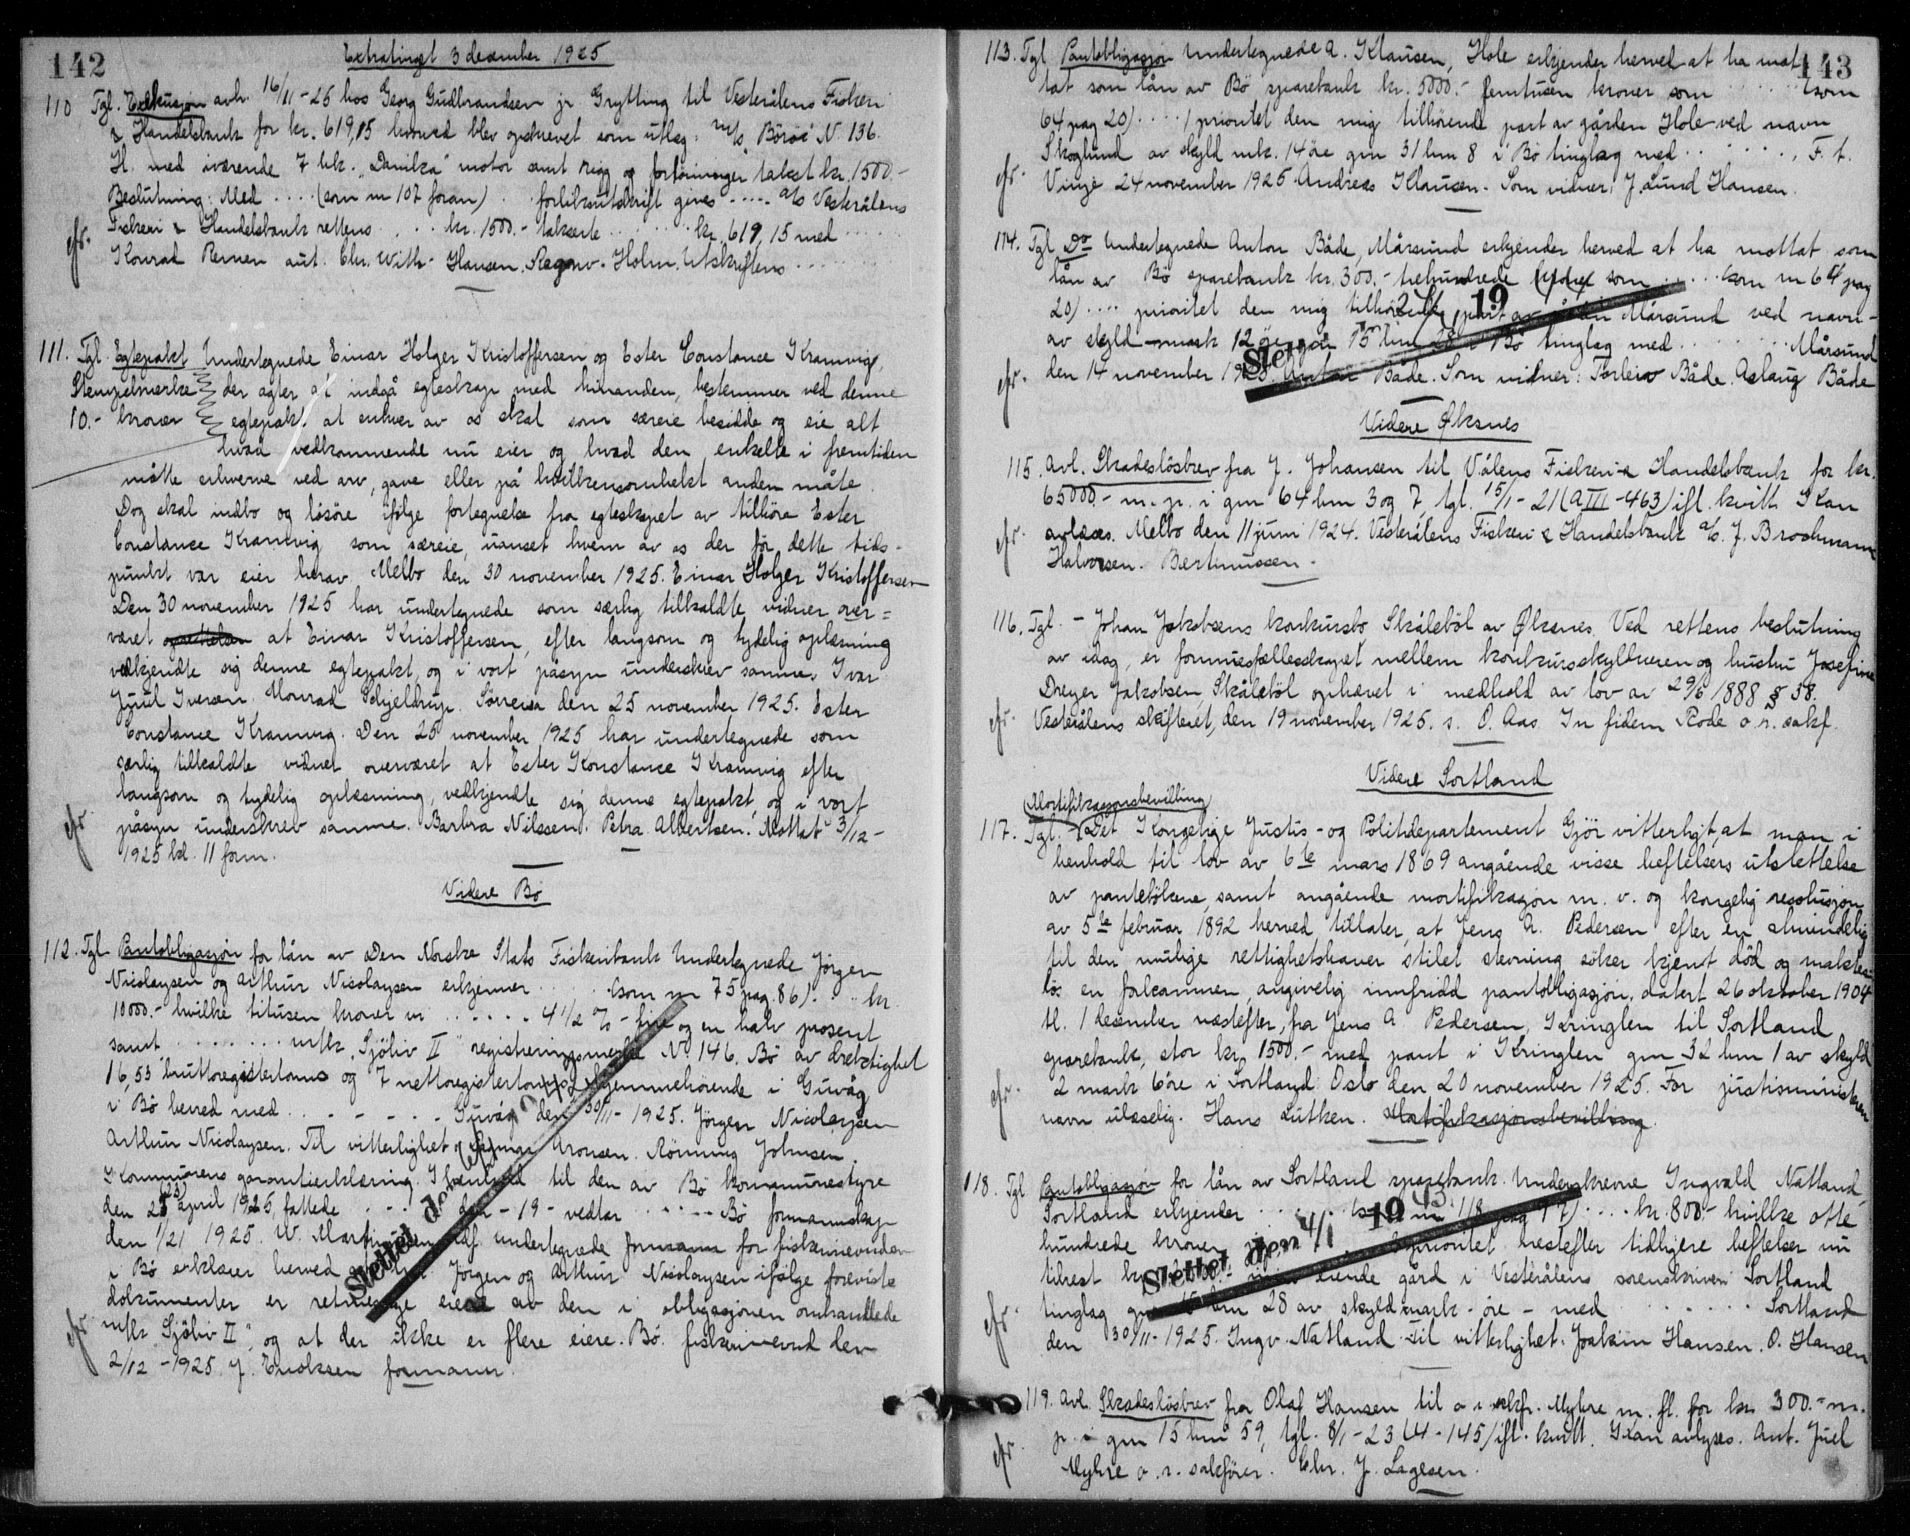 142
Extratinget 3 december 1925
110 Tgl. Exekusjon avh. 16/11-25 hos Georg Gudbrandsen jr Grytting til Vesterålens Fiskeri
& Handelsbank for kr. 619,15 hvorved blev opskrevet som utlæg: m/s Böröe N. 136.
H. med iværende 7 hk. „Danika" motor samt rigg og fortöininger takst kr. 1500.-
Beslutning: Med ..... (som nr 107 foran) . . forlikutskrift gives ..... a/s Vesterålens
Fiskeri & Handelsbank rettens . . . . kr. 1500.- takserte ...... kr. 619,15 med ......
efr. Konrad Rennen aut. Chr. With-Hansen. Ragnv. Holm. Utskriftens ........
111. Tgl. Egtepakt Undertegnede Einar Holger Kristoffersen og Ester Constance Kramvig,
Stempelmerke der agter at indgå egteskap med hinanden, bestemmer ved denne
10.- kroner egtepakt at enhver av os skal som særeie besidde og eie alt
hvad vedkommende nu eier og hvad den enkelte i fremtiden
måtte erhverve ved arv, gave eller på hvilkensomhelst anden måte.
Dog skal indbo og lösöre ifölge fortegnelse fra egteskapet av tilhöre Ester
Constance Kramvig som særeie, uanset hvem av os der för dette tids-
punkt var eier herav. Melbo den 30 november 1925. Einar Holger Kristoffersen
Den 30 november 1925 har undertegnede som særlig tilkaldte vidner over=
været at Einar Kristoffersen, efter langsom og tydelig oplæsning
vedkjendte sig denne egtepakt, og i vort påsyn underskrev samme. Ivar
Juul Iversen. Monrad Schjeldrup. Sörreisa den 25 november 1925. Ester
Constance Kramvig. Den 25 november 1925 har undertegnede som
særlig tilkaldte vidner overværet at Ester Konstance Kramvig efter
langsom og tydelig oplæsning, vedkjendte sig denne egtepakt, og i vort
efr påsyn underskrev samme. Barbra Nilssen. Petra Albertsen. Mottat 3/12-
1925 kl. 11 form.
Videre Bö
112. Tgl. Pantobligasjon for lån av Den Norske Stats Fiskeribank Undertegnede Jörgen
Nicolaysen og Arthur Nicolaysen erkjenner ..... (som nr 75 pag. 86). .. kr.
10000.- hvilke titusen kroner vi ...... 4 1/2 % - fire og en halv prosent
samt ........ m/k. „Sjöliv II" registreringsmerke N. 146. Bö av drektighet
16,53 bruttoregistertonns og 7 nettoregistertonns hjemmehörende i Guvåg
i Bö herred med . . - - - - . Guvåg den 30/11-1925. Jörgen Nicolaysen
Arthur Nicolaysen. Til vitterlighet: Ragnar Aronsen. Rönning Johnsen.
Kommunens garantierklæring: I henhold til den av Bö kommunestyre
den 25 april 1925 fattede . . . . den - 19 - vedtar ...... Bö formannskap
den 1/21 1925. W. Martinussen . undertegnede formann for fiskerinevnden
i Bö erklærer herved at hr. Jörgen og Arthur Nicolaysen ifölge foreviste
dokumenter er retmessige eiere av den i obligasjonen omhandlede
efr m/k. „Sjöliv II", og at der ikke er flere eiere. Bö fiskerinevnd den
2/12-1925. J. Enoksen formann.
Slettet den
143
113. Tgl Pantobligasjon Undertegnede A. Klausen, Hole erkjender herved at ha mot-
tat som lån av Bö sparebank kr. 5000.- femtusen kroner som ..... (som
64 pag 20) ..... 1 prioritet den mig tilhörende part av gården Hole ved navn
Skoglund av skyld mk. 14 öre gnr 31 bnr 8 i Bö tinglag med ....... F. t.
efr. Vinje 24 november 1925 Andreas Klausen. Som vidner: J Lund Hansen.
114. Tgl Do Undertegnede Anton Både, Mårsund erkjender herved at ha mottat som
lån av Bö sparebank kr. 300.- trehundrede kroner som ..... (som nr 64 pag
20) .... prioritet den mig tilhörende part av gården Mårsund ved navn -
av skyld - mark 12 öre gnr 15 bnr 28 i Bö tinglag med ......... Mårsund
efr. den 14 november 1925. Anton Både. Som vidner: Torleiv Både. Aslaug Både
Slettet 19
Videre Öksnes
115. Avl. Skadeslösbrev fra J. Johansen til V.ålens Fiskeri & Handelsbank for kr.
65000.- m. p. i gnr 64 bnr 3 og 7, tgl. 15/1-21 (A III -463) ifl. kvitt. Kan
efr. avlæses. Melbo den 11 juni 1924. Vesterålens Fiskeri & Handelsbank a/s. J. Brochmann
Halvorsen. Bertinussen.
116. Tgl. - Johan Jakobsens konkursbo Skåleböl av Öksnes. Ved rettens beslutning
av idag, er formuesfællesskapet mellem konkursskyldneren og hustru Josefine
Dreyer Jakobsen, Skåleböl ophævet i medhold av lov av 29/6 1888 § 38.
efr. Vesterålens skifteret, den 19 november 1925. s. O. Aas. In fidem Rode o. r. sakf.
Videre Sortland
Mortifikasjonsbevilling
117. Tgl. Det Kongelige Justis- og Politidepartement Gjör vitterligt, at man i
henhold til lov av 6te mars 1869 angående visse heftelsers utslettelse
av pantebökene samt angående mortifikasjon m. v. og kongelig resolusjon
av 5te februar 1892 herved tillater, at Jens A. Pedersen efter en almindelig
til den mulige rettighetshaver stilet stevning söker kjent död og maktes-
lös en forkommen, angivelig innfridd pantobligasjon, datert 26 oktober 1904
tl. 1 desember næstefter, fra Jens A Pedersen, Kringlen til Sortland
sparebank, stor kr. 1500.- med pant i Kringlen gnr 32 bnr 1 av skyld
efr. 2 mark 6 öre i Sortland. Oslo den 20 november 1925. For justisministeren
navn uleselig. Hans Lutken. Mortifikasjonsbevilling.
118. Tgl Pantobligasjon for lån av Sortland sparebank. Underskrevne Ingvald Natland,
Sortland erkjender ...... kr. 800.- hvilke otte
hundrede kroner prioritet nestefter tidligere heftelser nu
tilrest kr. eiende gård i Vesterålens sorenskriveri Sortland
efr. tinglag gnr 15 bnr 28 av skyld mark - öre - med ....... Sortland
den 30/11-1925. Ingv. Natland. Til vitterlighet: Joakim Hansen. O. Hansen
Slettet den 4/1 1943
119. Avl. Skadeslösbrev fra Olaf Hansen til o. r. sakf. Myhre m. fl. for kr 300.- m.
efr p. i gnr 15 bnr 59, tgl. 8/1-23 (4-145) ifl. kvitt. Kan avlyses. Ant. Juel
Myhre o. r. sakförer. Chr. J. Lagesen.